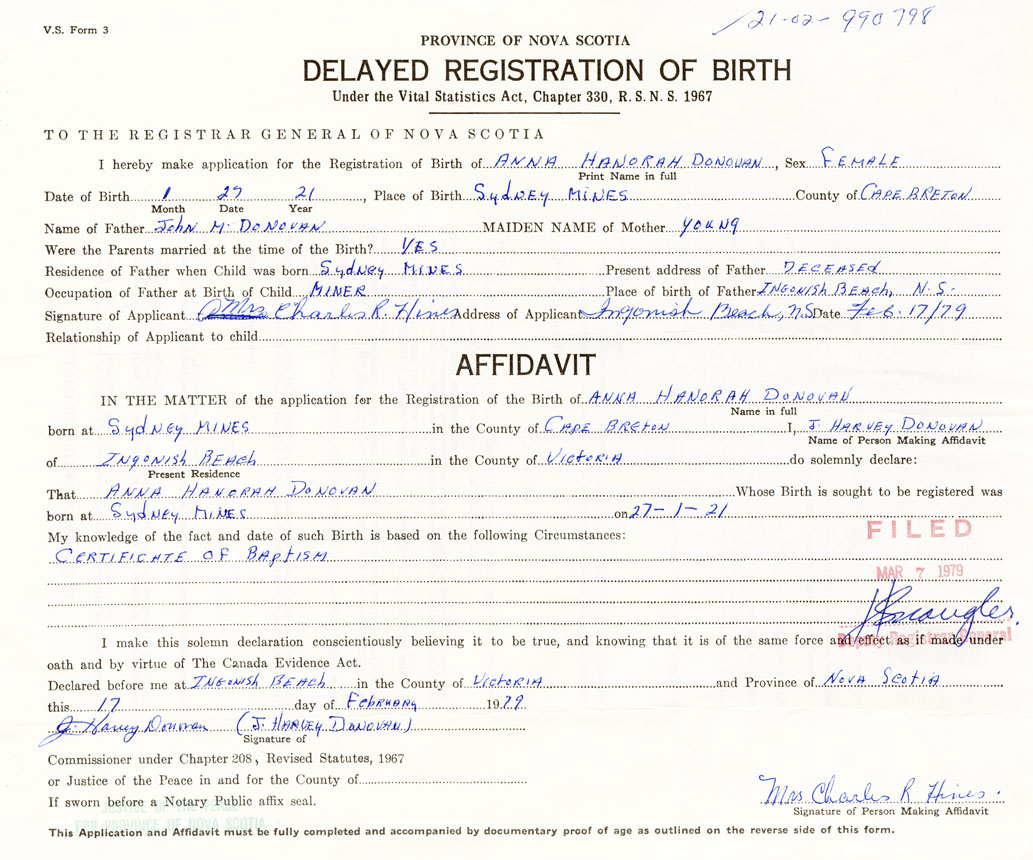 V.S. Form 3
21-02-990798
PROVINCE OF NOVA SCOTIA
DELAYED REGISTRATION OF BIRTH
Under the Vital Statistics Act, Chapter 330, R. S. N. S. 1967
TO THE REGISTRAR GENERAL OF NOVA SCOTIA
I hereby make application for the Registration of Birth of ANNA HANORAH DONOVAN, Sex FEMALE
Print Name in full
Date of Birth 1 27 21, Place of Birth SydNEy MINES County of CAPE BRETON
Month Date Year
Name of Father JohN M. DONOVAN MAIDEN NAME of Mother YOUNG
Were the Parents married at the time of the Birth? YES
Residence of Father when Child was born SydNEy MINES Present address of Father DECEASEd
Occupation of Father at Birth of Child MINER Place of birth of Father INGONISH BEACH, N.S.
Signature of Applicant Mrs Charles R. Hines Address of Applicant Ingonish Beach, N.S Date Feb. 17/79
Relationship of Applicant to child
AFFIDAVIT
IN THE MATTER of the application for the Registration of the Birth of ANNA HANORAH DONOVAN
Name in full
born at SydNEy MINES in the County of CAPE BRETON I, J. HARVEY DONOVAN
Name of Person Making Affidavit
of INGONISH BEACH in the County of VICTORIA do solemnly declare:
Present Residence
That ANNA HANORAH DONOVAN Whose Birth is sought to be registered was
born at SydNEy MINES on 27-1-21
My knowledge of the fact and date of such Birth is based on the following Circumstances:
CERTIFICATE OF BAPTISM
FILED
MAR 7 1979
I make this solemn declaration conscientiously believing it to be true, and knowing that it is of the same force and effect as if made under
Deputy Registrar General
oath and by virtue of The Canada Evidence Act.
Declared before me at INGONISH BEACH in the County of VICTORIA and Province of NOVA SCOTIA
this 17 day of FEBRUARY 1979.
J. Harvey Donovan (J. HARVEY DONOVAN)
Signature of
Commissioner under Chapter 208, Revised Statutes, 1967
or Justice of the Peace in and for the County of
Mrs Charles R Hines.
If sworn before a Notary Public affix seal.
Signature of Person Making Affidavit
FOR PROVINCE OF NOVA SCOTIA
This Application and Affidavit must be fully completed and accompanied by documentary proof of age as outlined on the reverse side of this form.